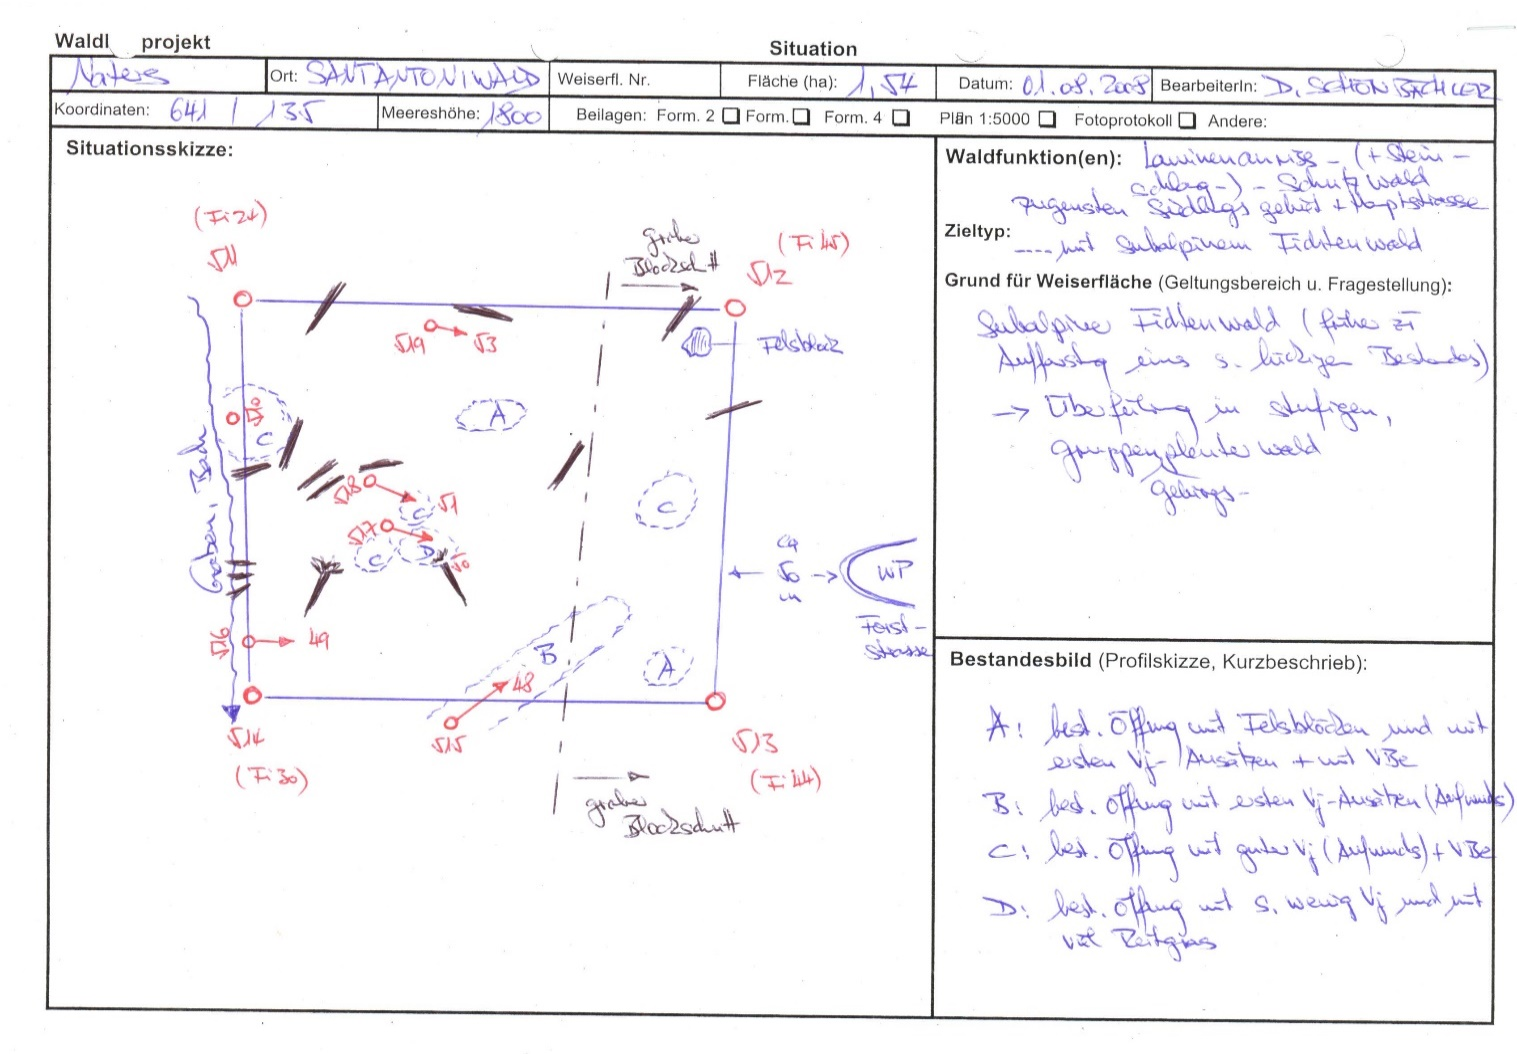 Waldl projekt
Situation
Naters
Ort: SANTANTONIWALD
Weiserfl. Nr.
Fläche (ha): 1,54
Datum: 01.08.2008
BearbeiterIn: D. SCHÖNBÄCHLER
Koordinaten: 641 / 135
Meereshöhe: 1800
Beilagen: Form. 2 Form. Form. 4 Plän 1:5000 Fotoprotokoll Andere:
Situationsskizze:
(Fi 24)
511
grober
Blockschutt
(Fi 45)
512
519 53
Felsblock
A
510
C
Graben, Bach
518 51
C
C
517
C D 50
ca
50
m
WP
Forst-
strasse
516 49
B
A
48
514
(Fi 30)
515
513
(Fi 44)
grober
Blockschutt
Waldfunktion(en): Lawinenanriss- (+ Stein-
schlag-) - Schutzwald
zugunsten Siedlungsgebiet + Hauptstrasse
Zieltyp: .... mit Subalpinem Fichtenwald
Grund für Weiserfläche (Geltungsbereich u. Fragestellung):
Subalpiner Fichtenwald (frühe
Aufforstg eines s. lückigen Bestandes)
→ Überführung in stufigen,
Gruppenplenterwald
Gebirgs-
Bestandesbild (Profilskizze, Kurzbeschrieb):
A: best. Öffnung mit Felsblöcken und mit
ersten Vj-Ansätzen + mit VBe
B: best. Öffnung mit ersten Vj-Ansätzen (Aufwuchs)
C: best. Öffnung mit guter Vj (Aufwuchs) + VBe
D: best. Öffnung mit s. wenig Vj und mit
viel Reitgras